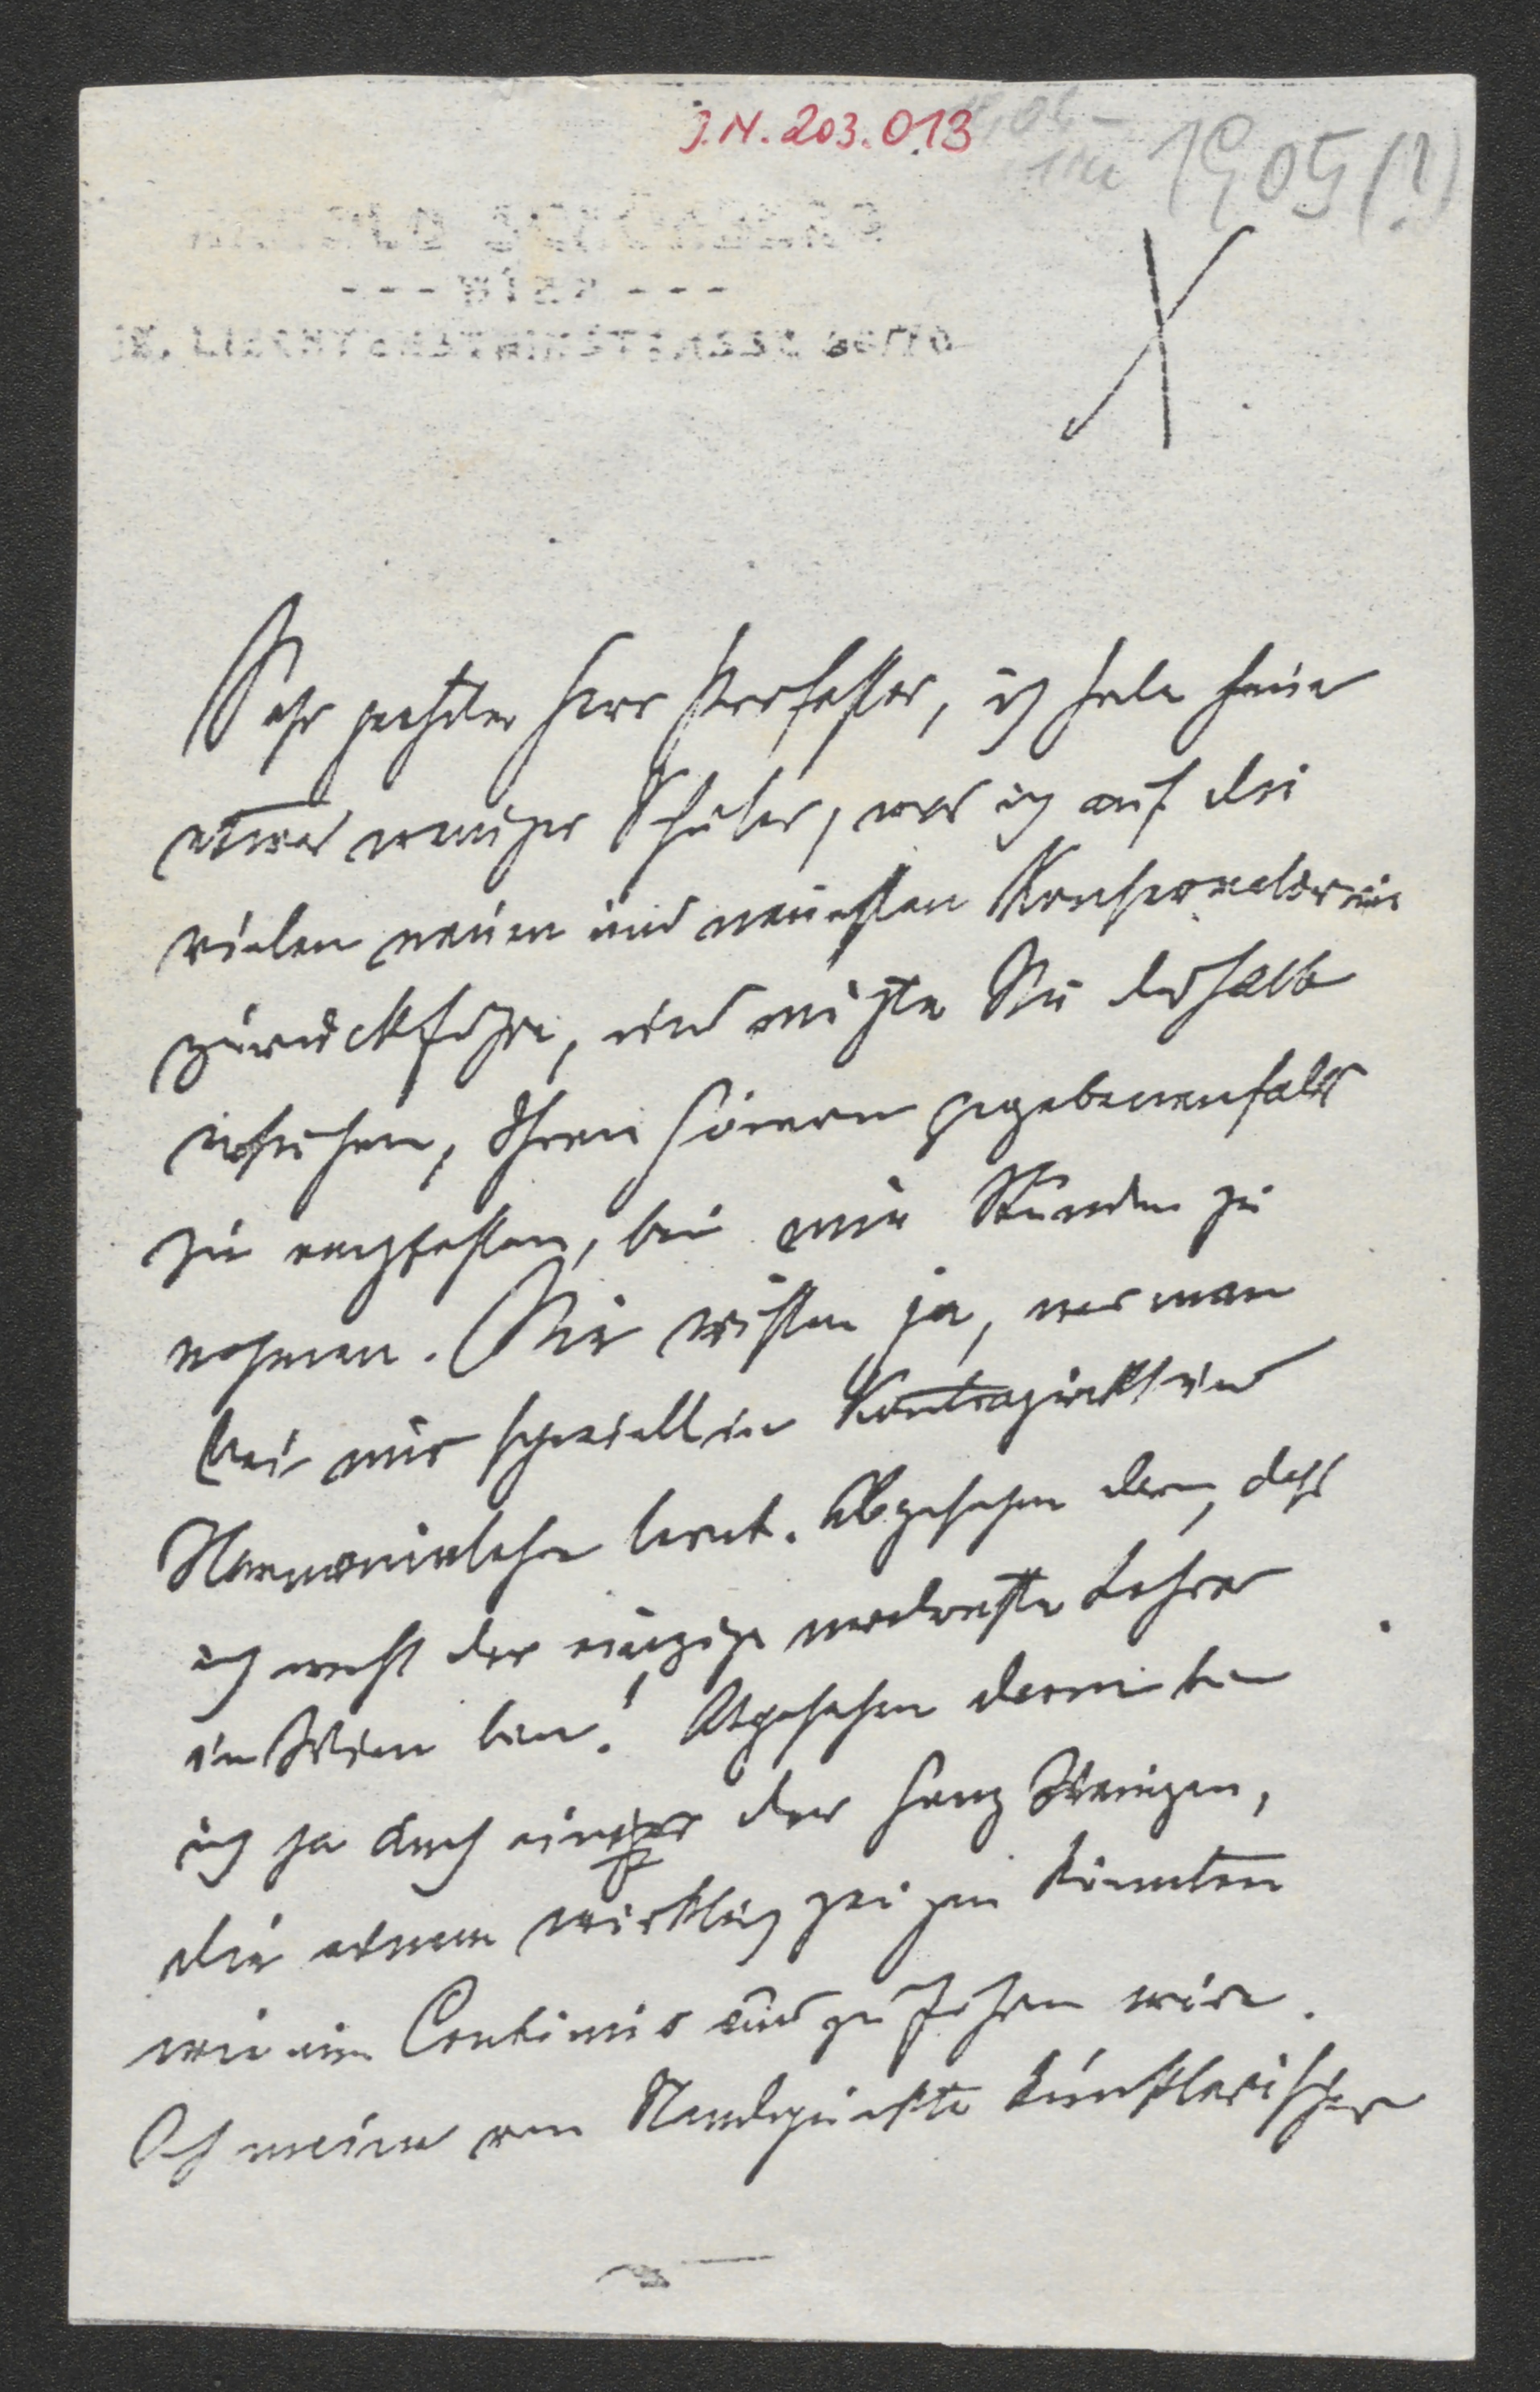 J.N. 203.013
1905 (?)
Sehr geehrter Herr Professor, ich habe heuer
etwas weniger Schüler, was ich auf die
vielen neuen und neuesten Konservatorien
zurückführe, und möchte Sie deshalb
ersuchen, Ihren Hörern gegebenenfalls
zu empfehlen, bei mir Stunden zu
nehmen. Sie wissen ja, was man
bei mir speziell in Kontrapunkt und
Harmonielehre lernt. Abgesehen davon, daß
ich wohl der einzige modernste Lehrer
in Wien bin! Abgesehen davon bin
ich ja auch einer der ganz Wenigen,
die einem wirklich zeigen könnten
wie ein Continuo auszuführen wäre.
Ich meine vom Standpunkte künstlerischer